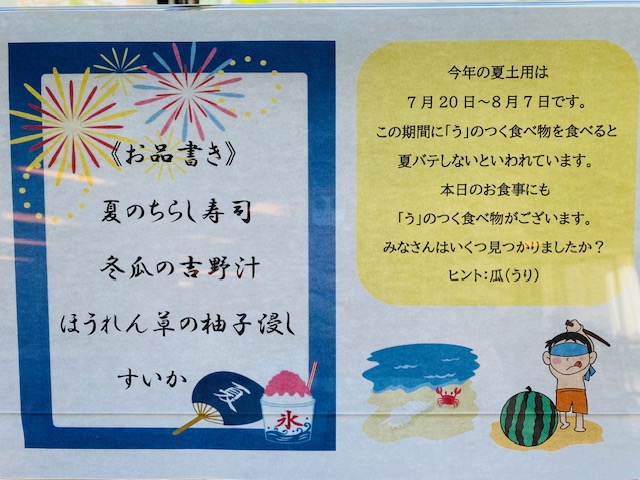 《お品書き》
夏のちらし寿司
冬瓜の吉野汁
ほうれん草の柚子浸し
すいか
夏
氷
今年の夏土用は
7月20日～8月7日です。
この期間に「う」のつく食べ物を食べると
夏バテしないといわれています。
本日のお食事にも
「う」のつく食べ物がございます。
みなさんはいくつ見つかりましたか？
ヒント：瓜（うり）